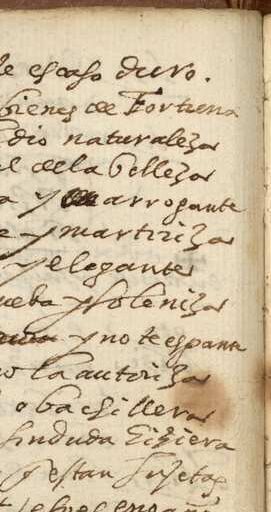 escaso duro.
bienes de Fortuna
dio naturaleza
el de la belleza
a y arrogante
e y martiriza
y elegante
ueba y soleniza
y no te espante
o la autoriza
o bachillera
sin duda
y estan sujetas